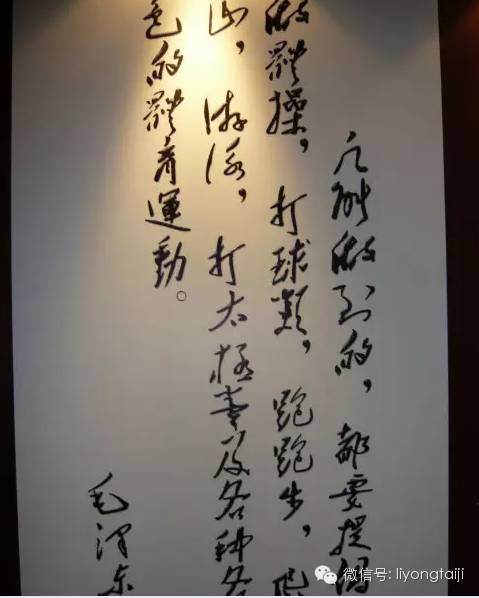 凡能做到的，都要提倡
做體操，打球類，跑跑步，爬
山，游泳，打太極拳以及各種各
色的體育運動。
毛澤東
微信号: liyongtaiji